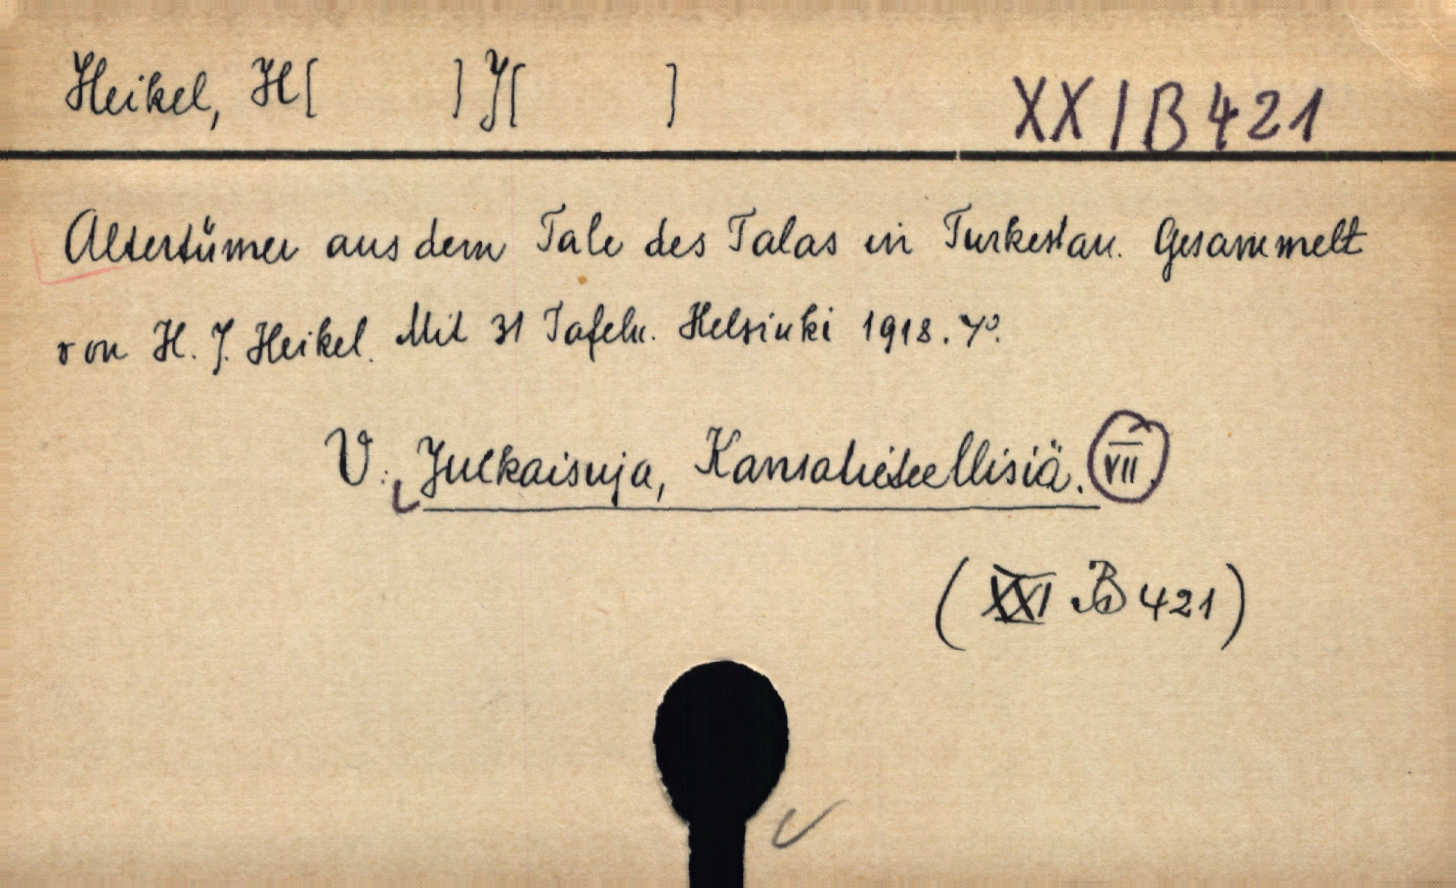 Heikel, H[ ] J[ ]
XXI B 421
Altertümer aus dem Tale des Talas in Turkestan. Gesammelt
von H. J. Heikel. Mit 31 Tafeln. Helsinki 1918. 4°.
V. Julkaisuja, Kansatieteellisiä. VII.
(XXI B 421)